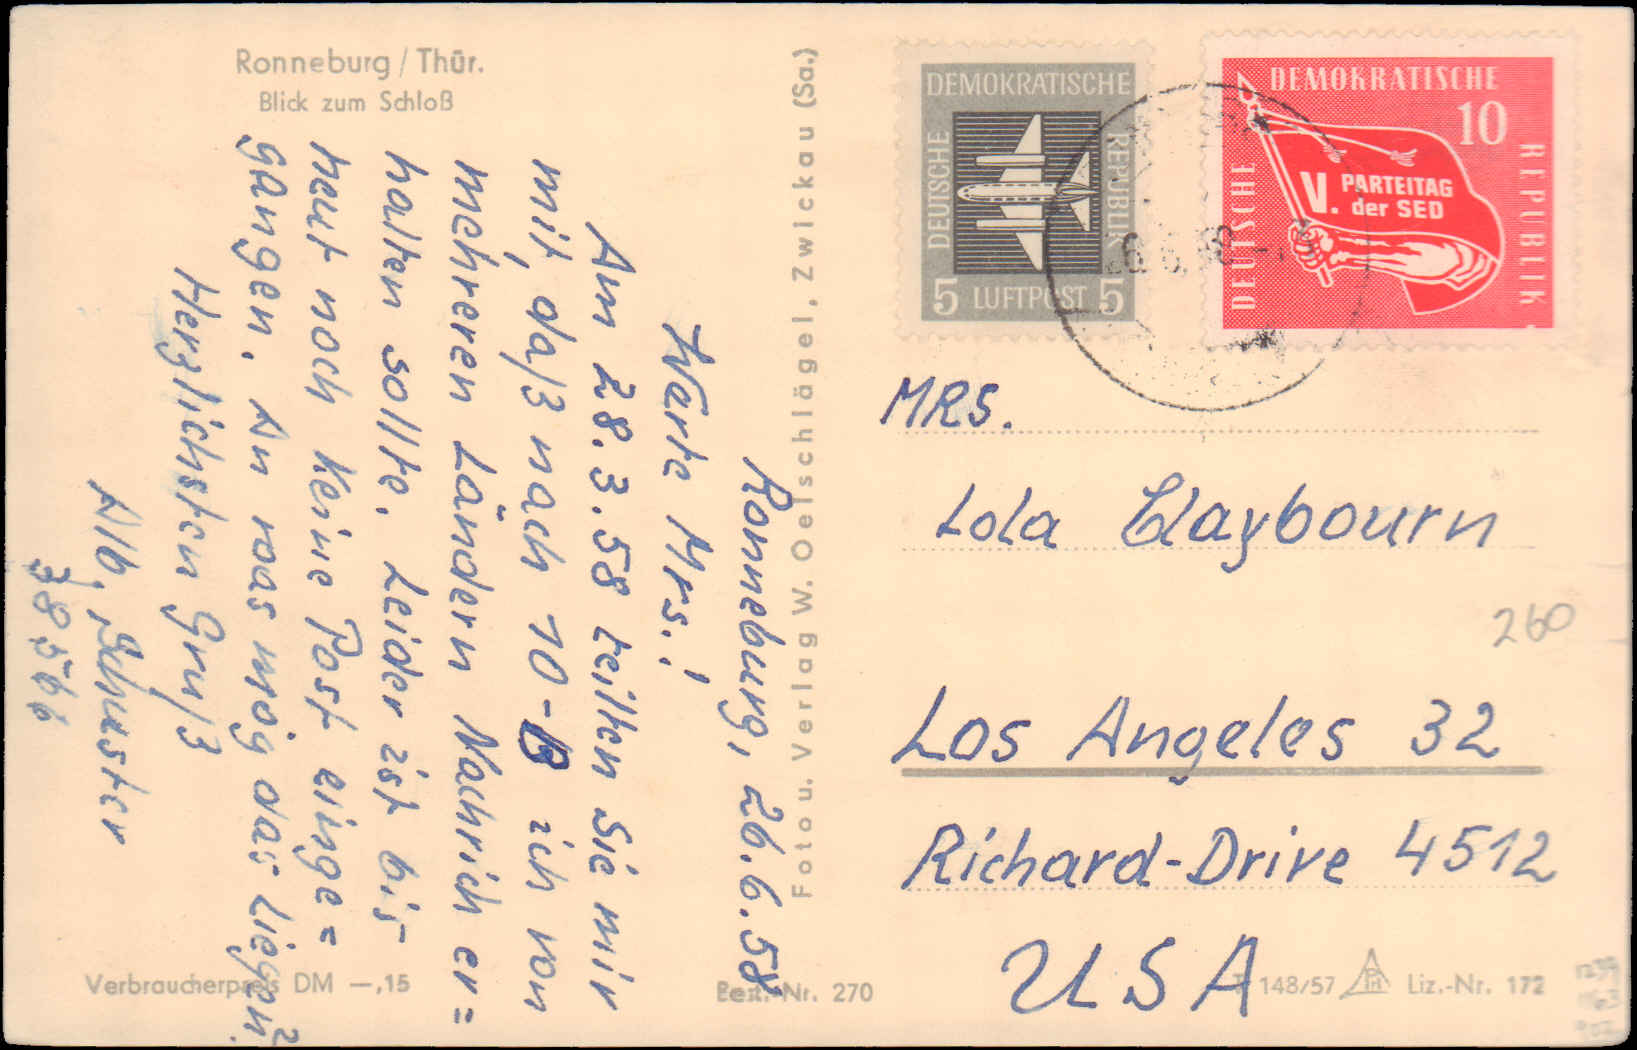 Ronneburg / Thür.
Blick zum Schloß
Ronneburg, 26.6.58
Werte Mrs.!
Am 28.3.58 teilten Sie mir
mit, daß nach 10- ich von
mehreren Ländern Nachrich er=
halten sollte. Leider ist bis
heut noch keine Post einge=
gangen. An was mög das liegen?
Herzlichsten Gruß
Alb. Schuster
Foto u. Verlag W. Oelschlägel, Zwickau (Sa.)
DEMOKRATISCHE
DEUTSCHE
REPUBLIK
5 LUFTPOST 5
DEMOKRATISCHE
10
DEUTSCHE
REPUBLIK
V. PARTEITAG
der SED
MRS.
Lola Claybourn
260
Los Angeles 32
Richard-Drive 4512
USA
Verbraucherpreis DM —,15
Best.-Nr. 270
148/57
Liz.-Nr. 172